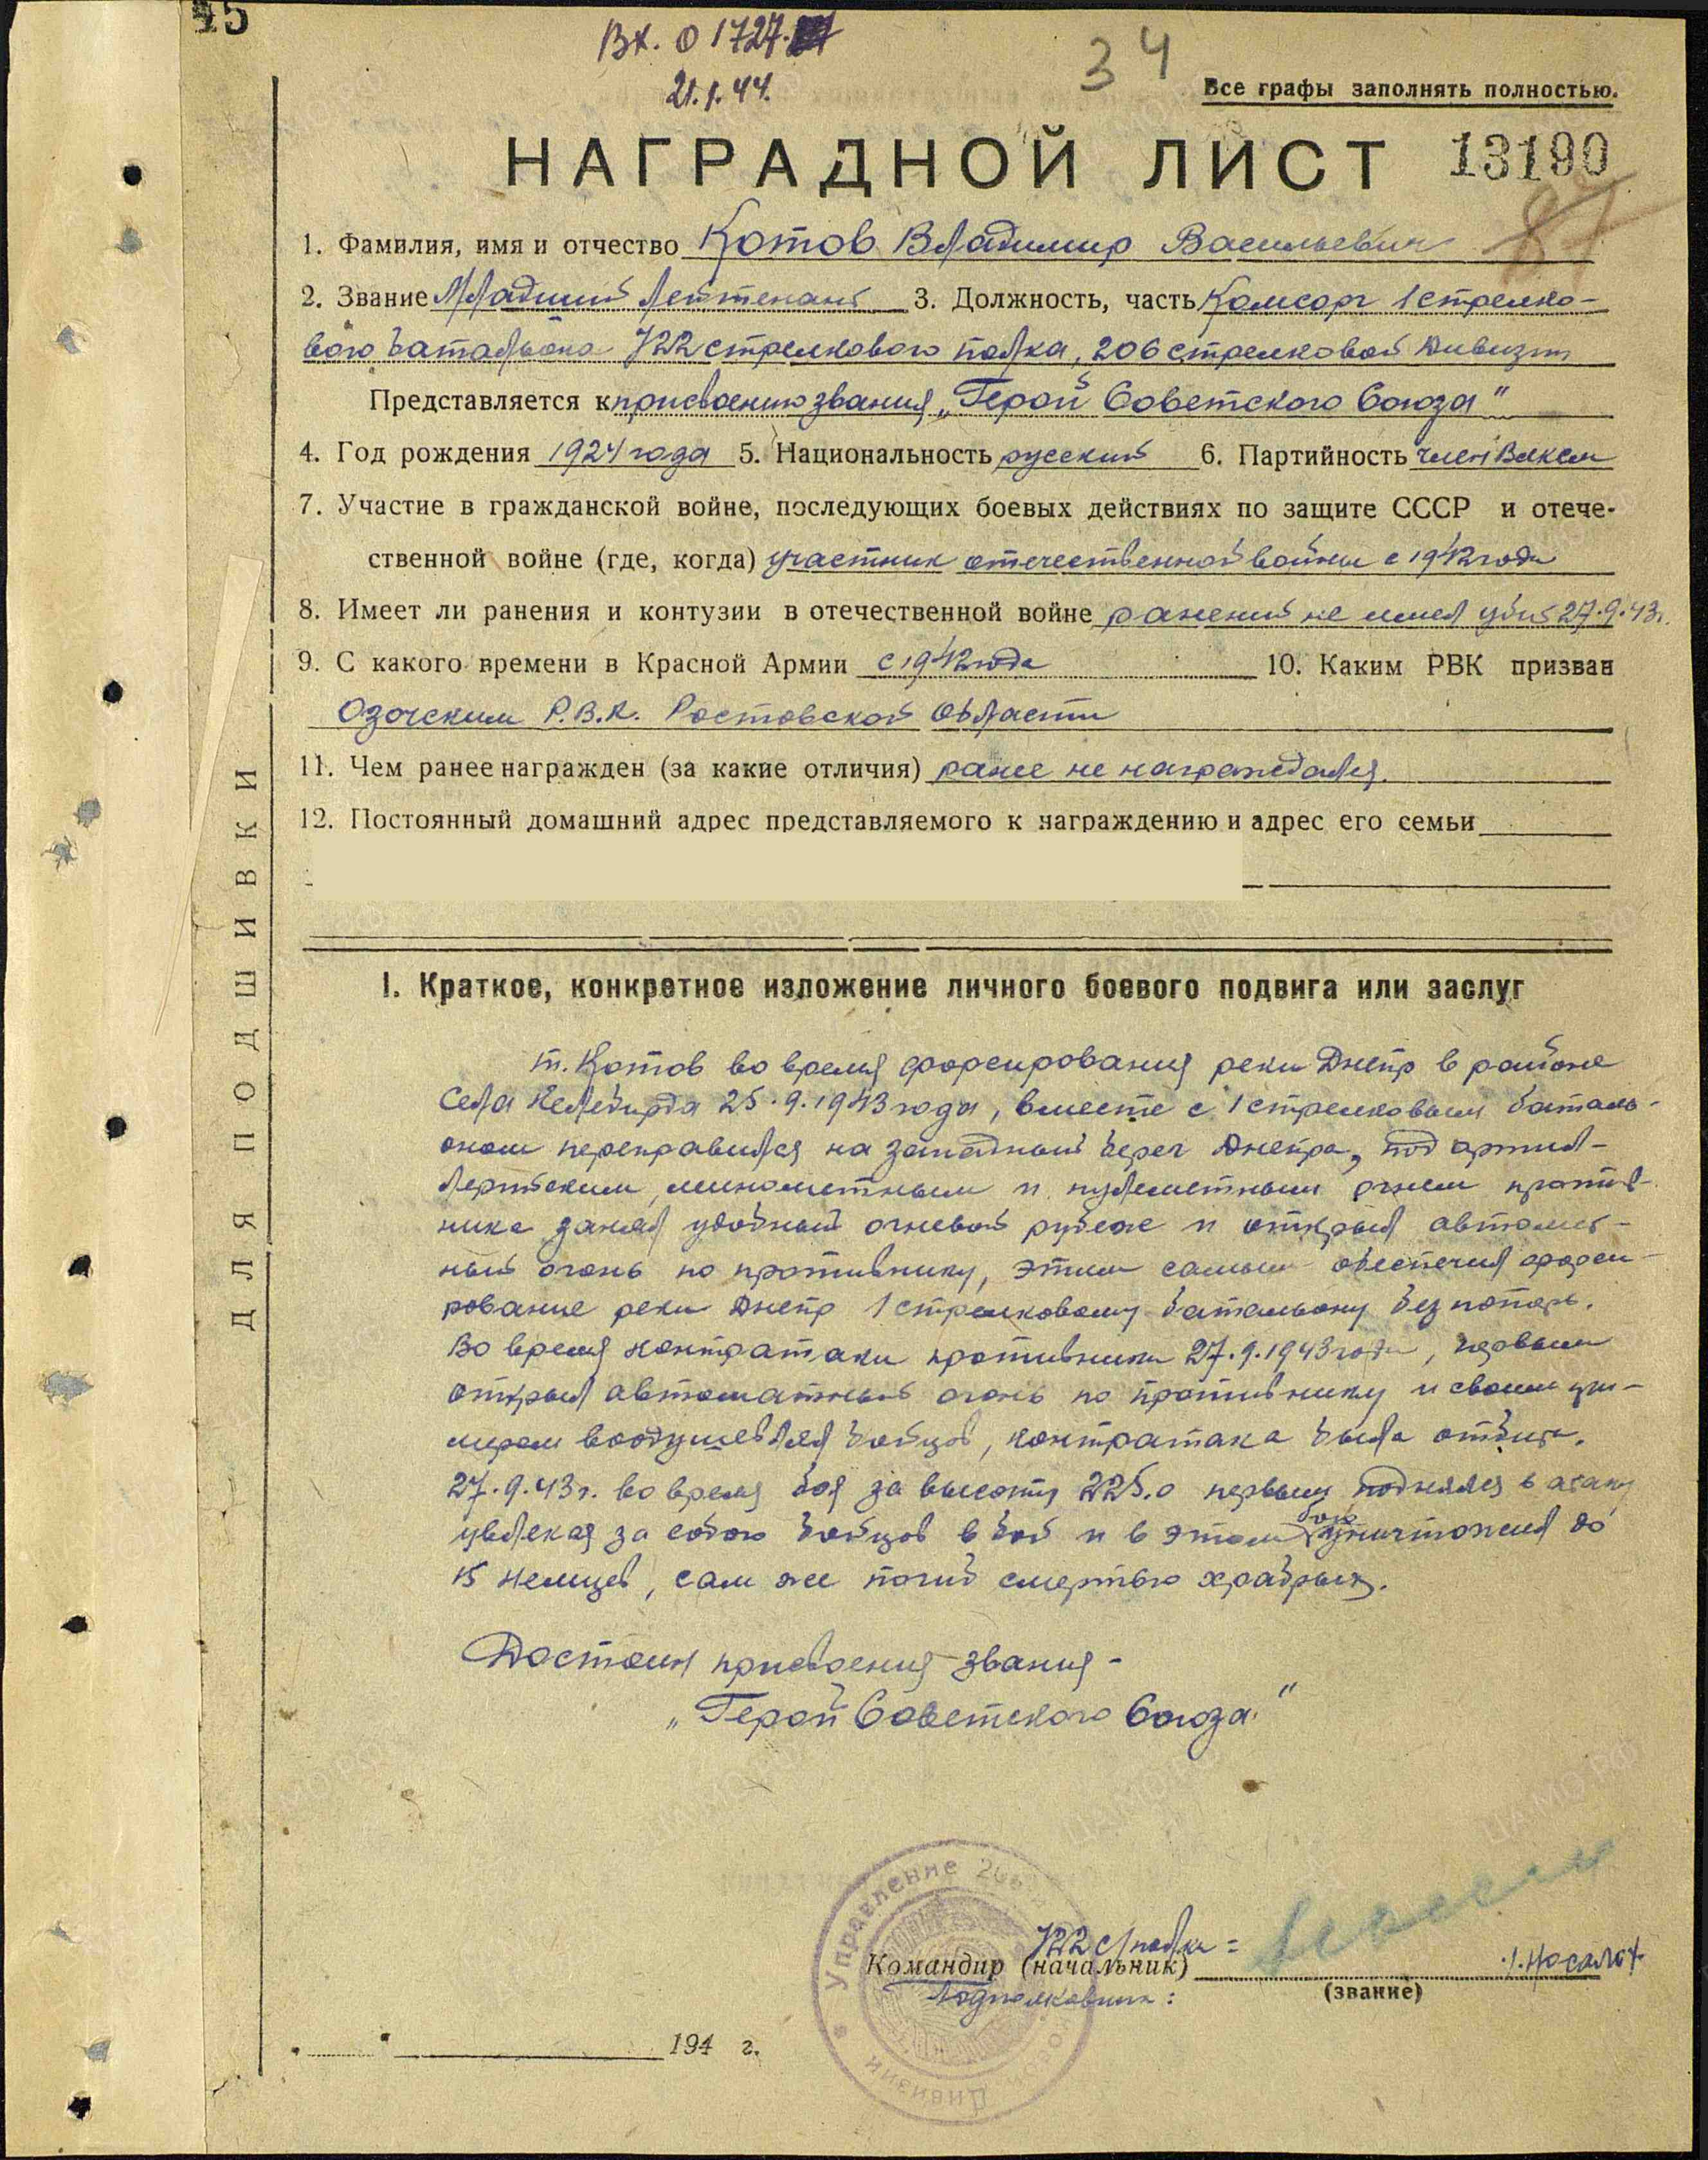 45
Вх. 01727
21.1.44.
34
Все графы заполнять полностью.
НАГРАДНОЙ ЛИСТ 13190
87
1. Фамилия, имя и отчество Котов Владимир Васильевич
2. Звание Младший Лейтенант 3. Должность, часть Комсорг 1 стрелко-
вого батальона 722 стрелкового полка, 206 стрелковой Дивизии
Представляется к присвоению звания „Герой Советского Союза"
4. Год рождения 1924 года 5. Национальность русский 6. Партийность член Влксм
7. Участие в гражданской войне, последующих боевых действиях по защите СССР и отече-
ственной войне (где, когда) участник отечественной войны с 1942 года
8. Имеет ли ранения и контузии в отечественной войне ранений не имел убит 27.9.43г.
9. С какого времени в Красной Армии с 1942 года 10. Каким РВК призван
Озочским Р.В.К. Ростовской области
11. Чем ранее награжден (за какие отличия) ранее не награждался.
12. Постоянный домашний адрес представляемого к награждению и адрес его семьи
I. Краткое, конкретное изложение личного боевого подвига или заслуг
т. Котов во время форсирования реки Днепр в районе
села Келеберда 25.9.1943 года, вместе с 1 стрелковым баталь-
оном переправился на западный берег Днепра, под артил-
лерийским, минометным и пулеметным огнем против-
ника занял удобный огневой рубеж и открыл автомат-
ный огонь по противнику, этим самым обеспечил форси-
рование реки Днепр 1 стрелковому батальону без потерь.
Во время контратаки противника 27.9.1943 года, первым
открыл автоматный огонь по противнику и своим при-
мером воодушевлял бойцов, контратака была отбита.
27.9.43г. во время боя за высоту 225.0 первым поднялся в атаку
увлекая за собою бойцов в бой и в этом бою уничтожил до
15 немцев, сам же погиб смертью храбрых.
Достоин присвоения звания -
„Герой Советского Союза"
ДЛЯ ПОДШИВКИ
Управление 206 Дивизии
722 с/полка =
Командир (начальник)
Подполковник:
(звание)
194 г.
ЦА МО РФ